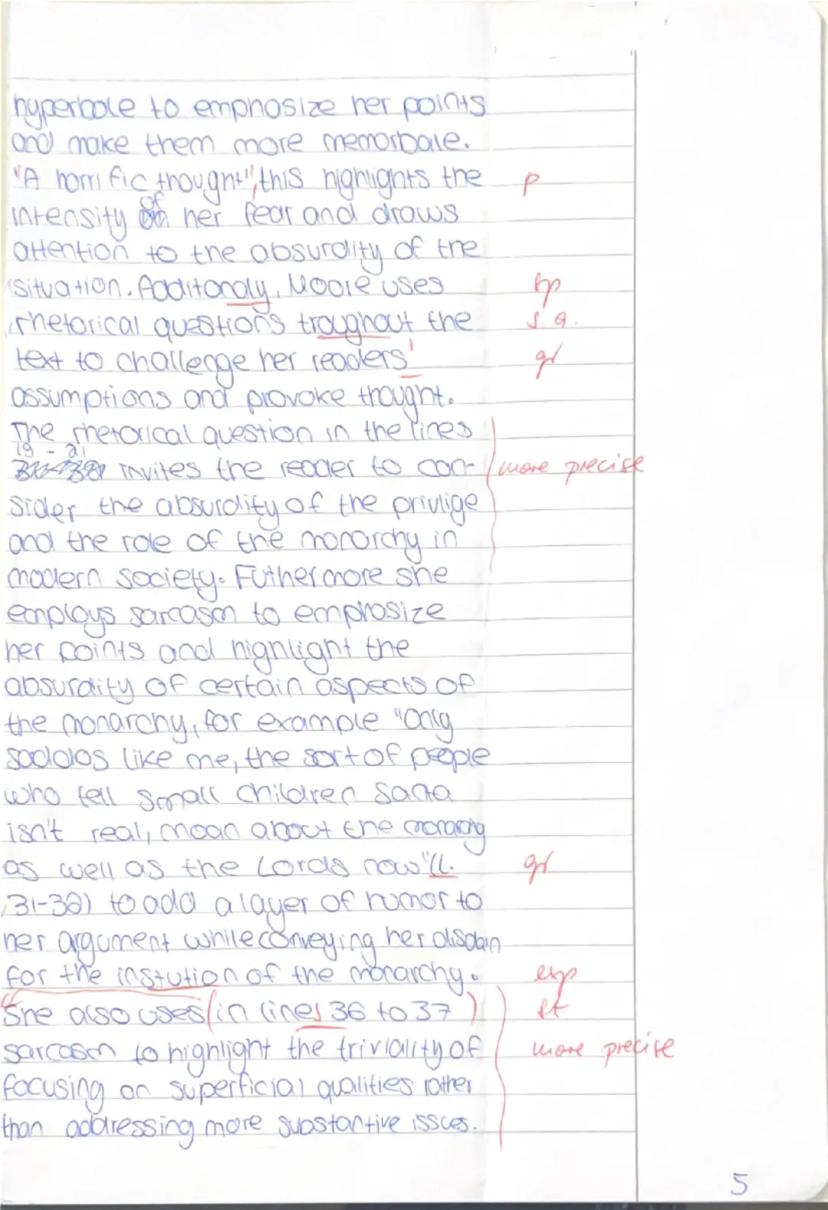 hyperbole to emphosize her points
and make them more memorbale.
"A horrific thought", this highlights the p
intensity of her fear and draws
attention to the absurdity of the
situation. Additonaly, Moore uses sp
rhetorical questions troughout the s.a.
text to challenge her readers' gr
assumptions and provoke thought.
The rhetorical question in the lines
19-21 invites the reader to con- more precise
sider the absurdity of the privlige
and the role of the monarchy in
modern society. Futhermore she
employs sarcasm to emphosize
her points and highlight the
absurdity of certain aspects of
the monarchy, for example "Only
saddos like me, the sort of people
who tell small children Santa
isn't real, moan about the monarchy
as well as the Lords now"(l. gr
31-32) to add a layer of humor to
her argument while conveying her disdain
for the instution of the monarchy. exp
She also uses (in lines 36 to 37) st
sarcasm to highlight the triviality of more precise
focusing on superficial qualities rather
than addressing more substantive issues.
5